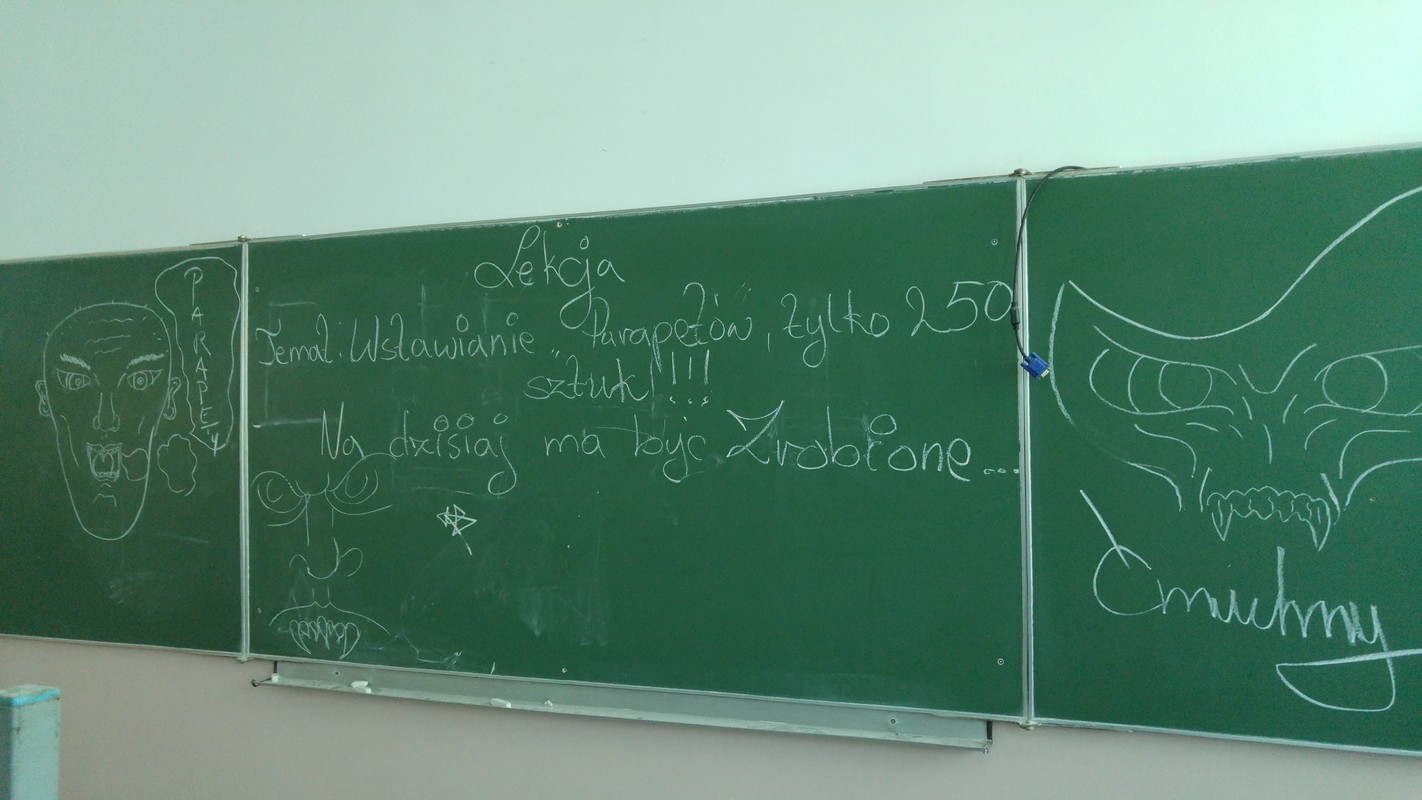 PARAPETY
Lekcja
Temat: Wstawianie "Parapetów", tylko 250
sztuk!!!
Na dzisiaj ma być Zrobione...